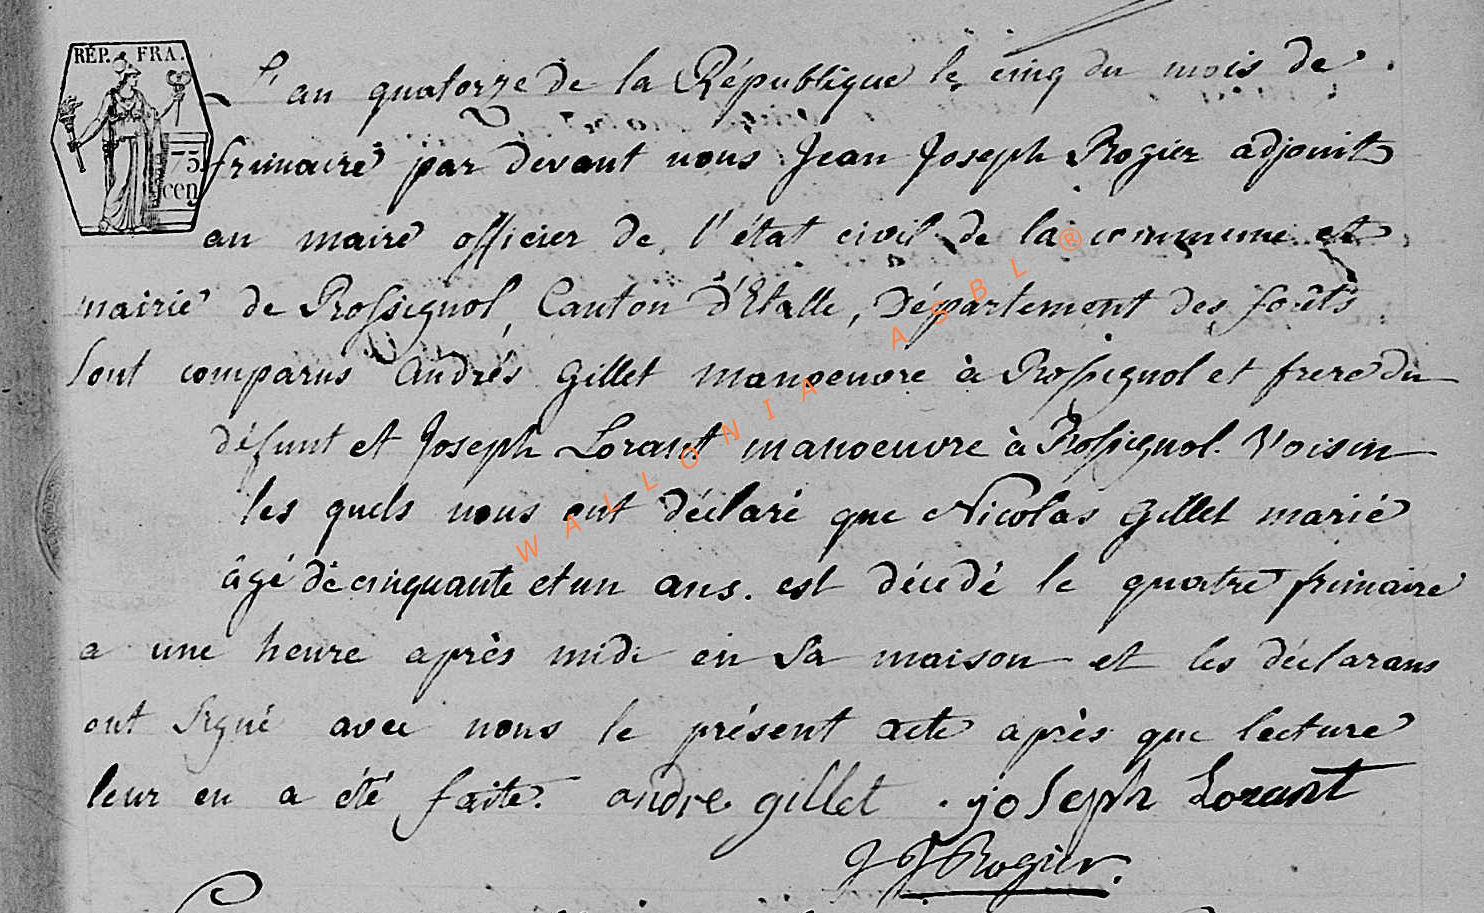 RÉP. FRA.
75
cen
L'an quatorze de la République le cinq du mois de
frimaire par devant nous Jean Joseph Rogier adjoint
au maire officier de l'état civil de la commune et
mairie de Rossignol, Canton d'Etalle, Département des forêts
sont comparus andrés Gillet manoeuvre à Rossignol et frere du
défunt et Joseph Lorant manoeuvre à Rossignol. Voisin
les quels nous ont déclaré que Nicolas Gillet marié
âgé de cinquante et un ans. est décédé le quatre frimaire
a une heure après midi en sa maison et les déclarans
ont signé avec nous le présent acte après que lecture
leur en a été faite. andre gillet . joseph Lorant
J J Rogier.
WALLONIA ASBL ®